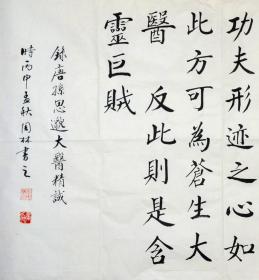 功夫形迹之心如
此方可為蒼生大
醫 反此則是含
靈巨賊
錄唐孫思邈大醫精誠
時丙申孟秋周林書之